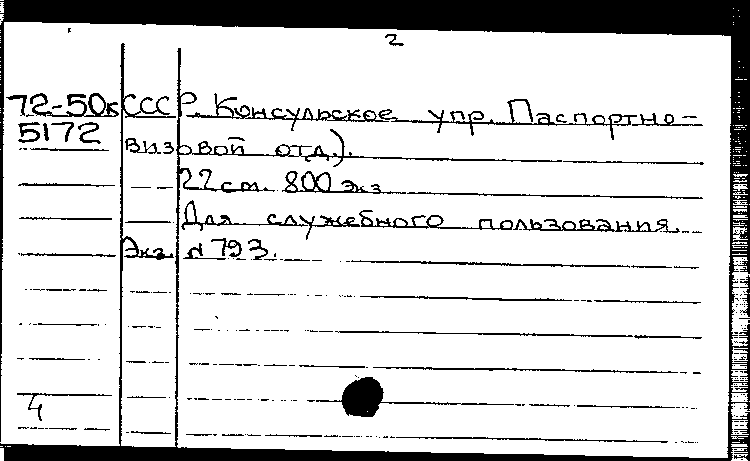 2
72-50к СССР. Консульское упр. Паспортно-
5172 визовой отд.).
22 см. 800 экз
Для служебного пользования.
Экз. № 793.
4